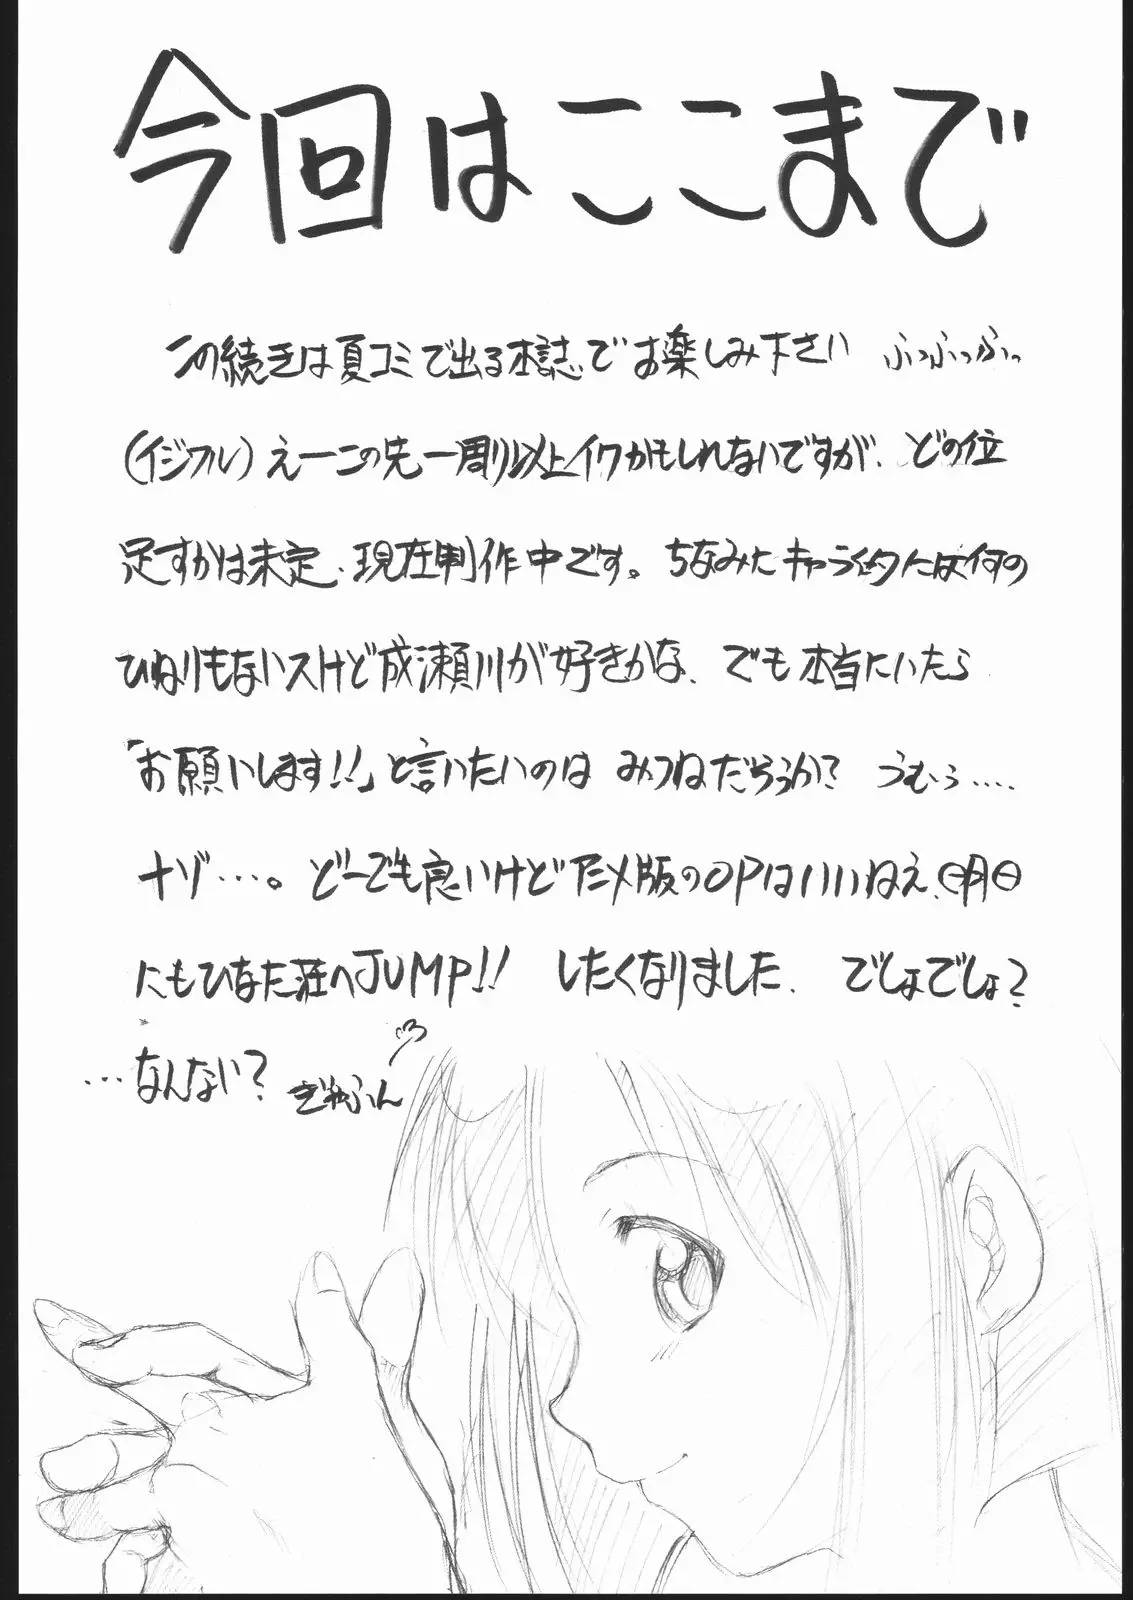 今回はここまで
この続きは夏コミで出る本誌でお楽しみ下さい ふっふっふっ
(イジワル) えーこの先一周り以上イクかもしれないですが、どの位
足すかは未定、現在制作中です。ちなみにキャラ的には何の
ひねりもないスけど成瀬川が好きかな、でも本当にいたら
「お願いします!!」と言いたいのは みつねだろうか? うむぅ....
ナゾ...。どーでも良いけどアニメ版のOPはいいねぇ、明日
にもひなた荘へJUMP!! したくなりました、でしょでしょ?
...なんない? ぎゃふん